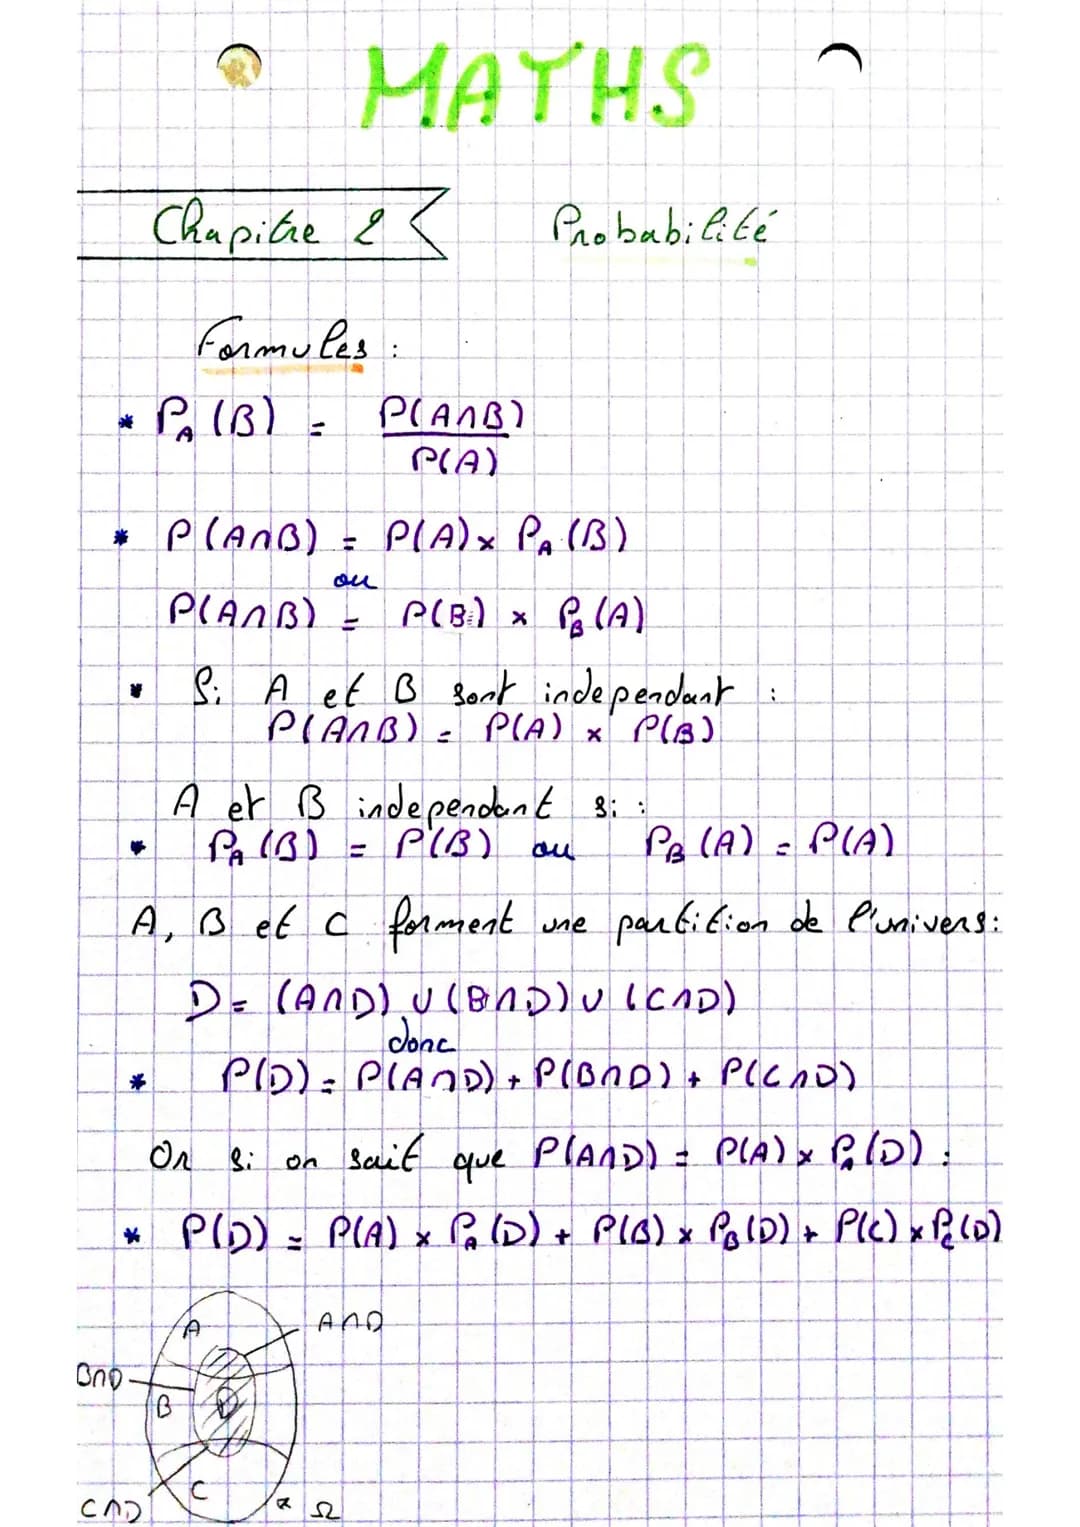 MATHS
Chapitre 2 Probabilité
Formules :
* P_A (B) = P(A∩B) / P(A)
* P(A∩B) = P(A) × P_A (B)
ou
P(A∩B) = P(B) × P_B (A)
* Si A et B sont independant :
P(A∩B) = P(A) × P(B)
A et B independant si :
* P_A (B) = P(B) ou P_B (A) = P(A)
A, B et C forment une partition de l'univers :
D = (A∩D) ∪ (B∩D) ∪ (C∩D)
donc
* P(D) = P(A∩D) + P(B∩D) + P(C∩D)
Or si on sait que P(A∩D) = P(A) × P_A (D) :
* P(D) = P(A) × P_A (D) + P(B) × P_B (D) + P(C) × P_C (D)
A A∩D
B∩D
B D
C
C∩D Ω